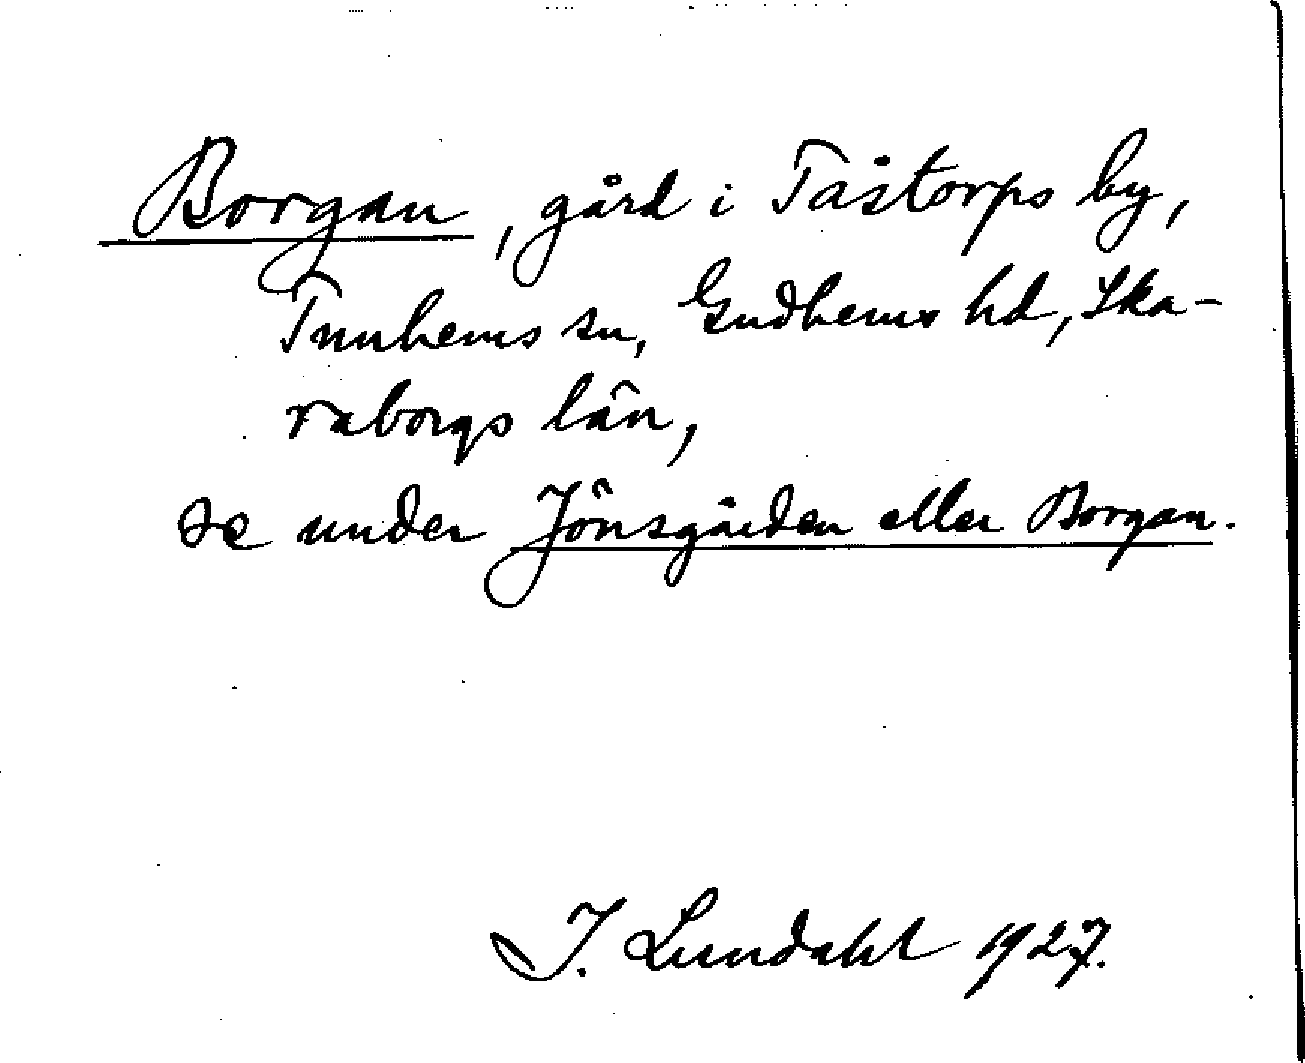 Borgan, gård i Tåstorps by,
Tunhems sn, Gudhems hd, Ska-
raborgs län,
se under Jönsgården eller Borgan.
I. Lundahl 1927.